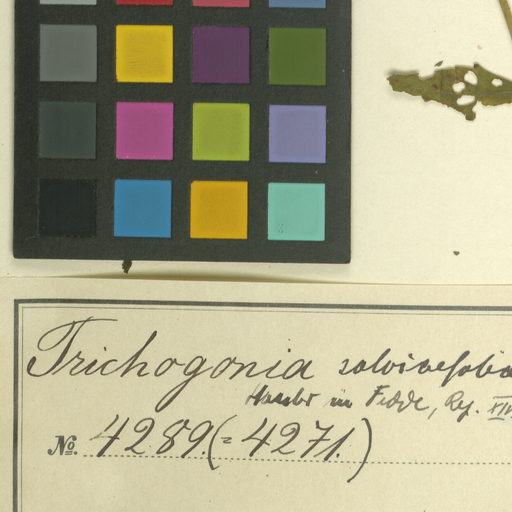 Trichogonia salviaefolia
in Fedde, Rep. XIV
No. 4289. (= 4271.)